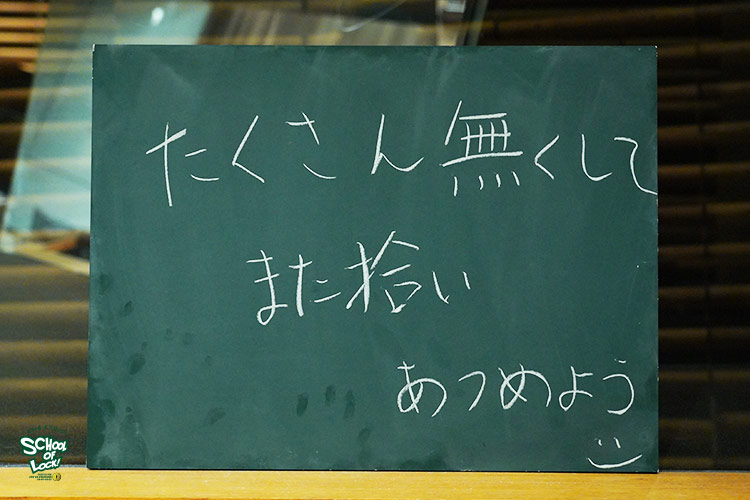 たくさん無くして
また拾い
あつめよう
SCHOOL
OF
LOCK!